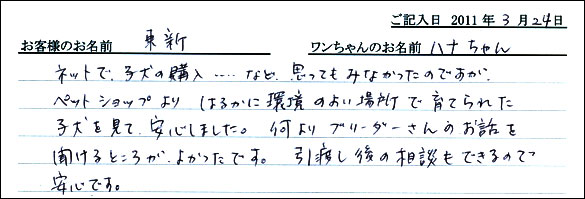 ご記入日 2011年3月24日
お客様のお名前 東 新 ワンちゃんのお名前 ハナちゃん
ネットで、子犬の購入‥‥など、思ってもみなかったのですが、
ペットショップより はるかに環境のよい場所で育てられた
子犬を見て、安心しました。 何よりブリーダーさんのお話を
聞けるところが、よかったです。 引渡し後の相談もできるので
安心です。